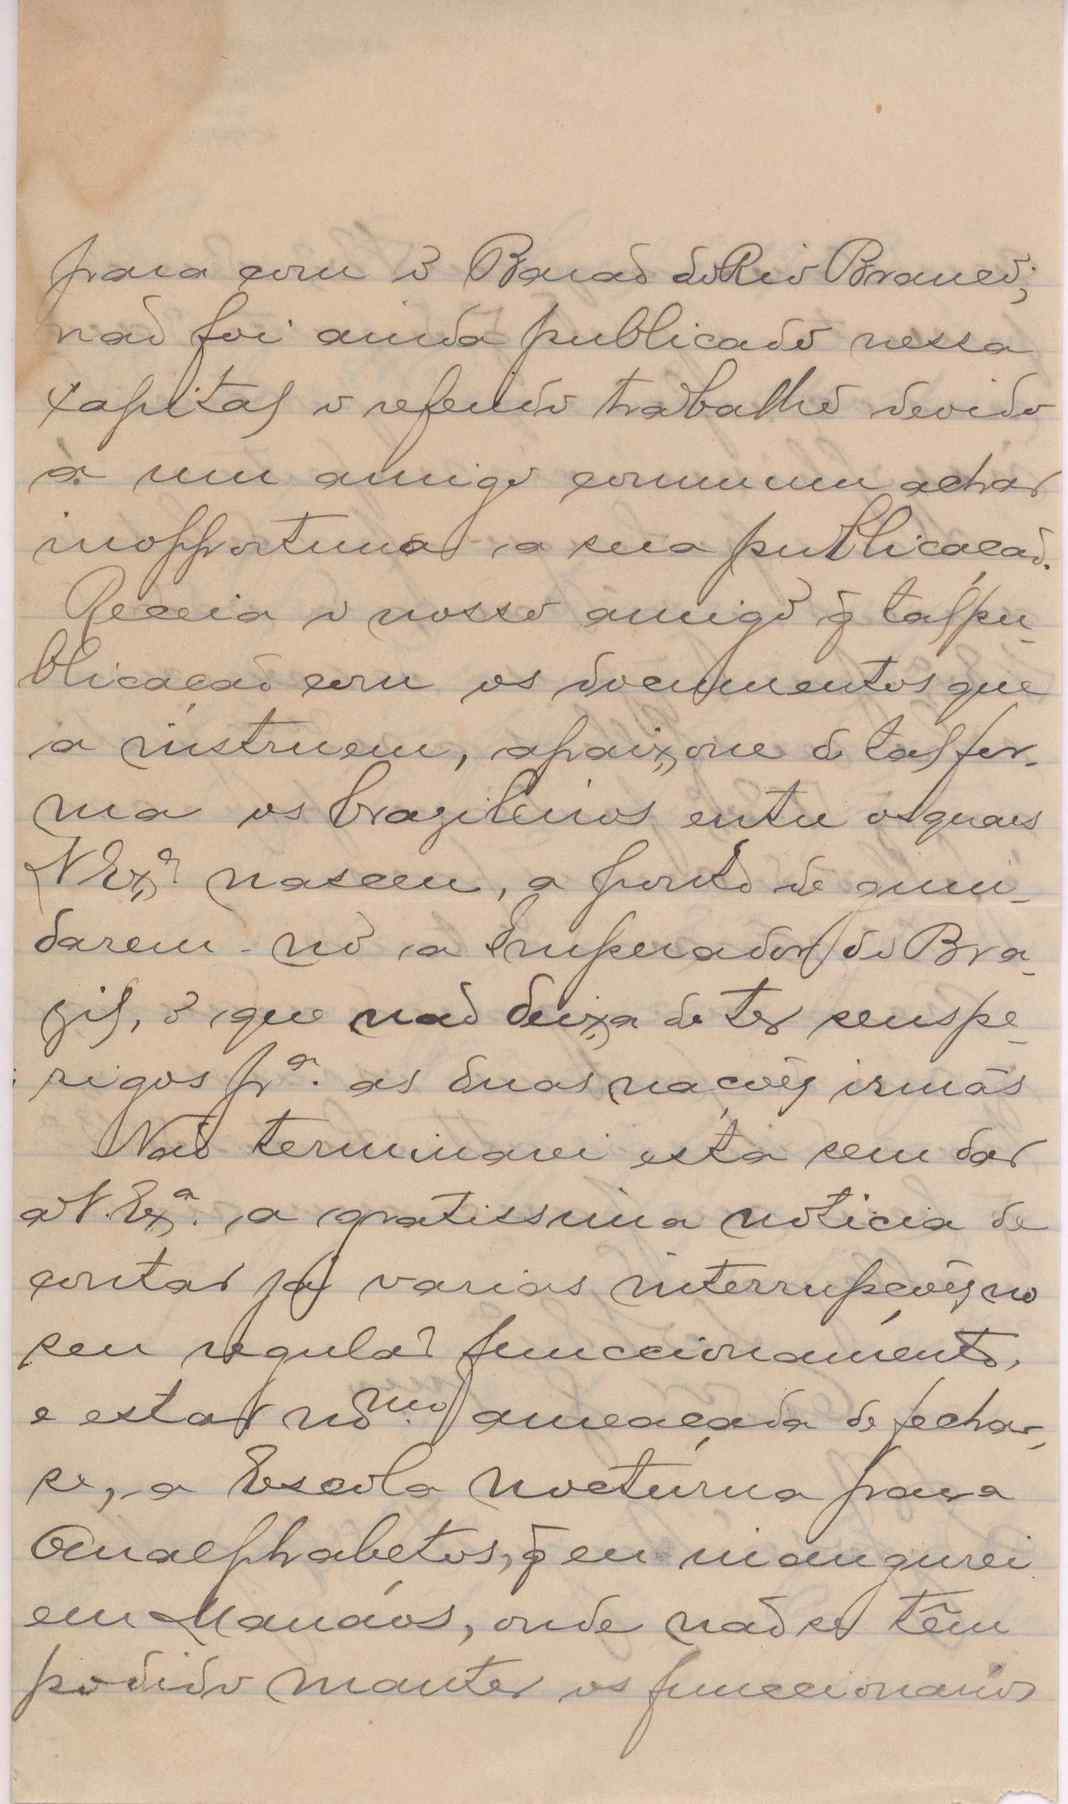 para com o Barão do Rio Branco;
não foi ainda publicado nessa
Capital o referido trabalho devido
a um amigo commum achar
inopportuna a sua publicação.
Receia o nosso amigo q̃ tal pu-
blicação com os documentos que
a instruem, apaixone de tal for-
ma os brazileiros entre os quaes
V Exª nasceu, a ponto de quin-
darem-no a Imperador do Bra-
zil, o que não deixa de ter seus pe-
rigos prª. as duas nações irmãs
Não terminarei esta sem dar
a V. Exª. a gratissima noticia de
contar já varias interrupções no
seu regular funccionamento,
e estar no mmo ameaçada de fechar-
se, a Escola nocturna para
Analphabetos, q̃ eu inaugurei
em Manáos, onde não se têm
podido manter os funccionarios